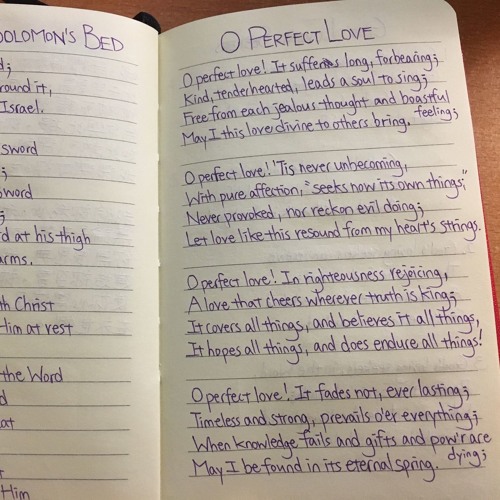 SOLOMON'S BED
d;
round it,
Israel.
sword
;
sword
;
d at his thigh
arms.
th Christ
Him at rest
the Word
d
at
Him
O PERFECT LOVE
O perfect love! It suffers long, forbearing;
Kind, tenderhearted, leads a soul to sing;
Free from each jealous thought and boastful
feeling;
May I this love divine to others bring.
O perfect love! 'Tis never unbecoming,
With pure affection, "seeks now its own things;"
Never provoked, nor reckon evil doing;
Let love like this resound from my heart's strings.
O perfect love! In righteousness rejoicing,
A love that cheers wherever truth is king;
It covers all things, and believes it all things,
It hopes all things, and does endure all things!
O perfect love! It fades not, ever lasting;
Timeless and strong, prevails o'er everything;
When knowledge fails and gifts and pow'r are
dying;
May I be found in its eternal spring.